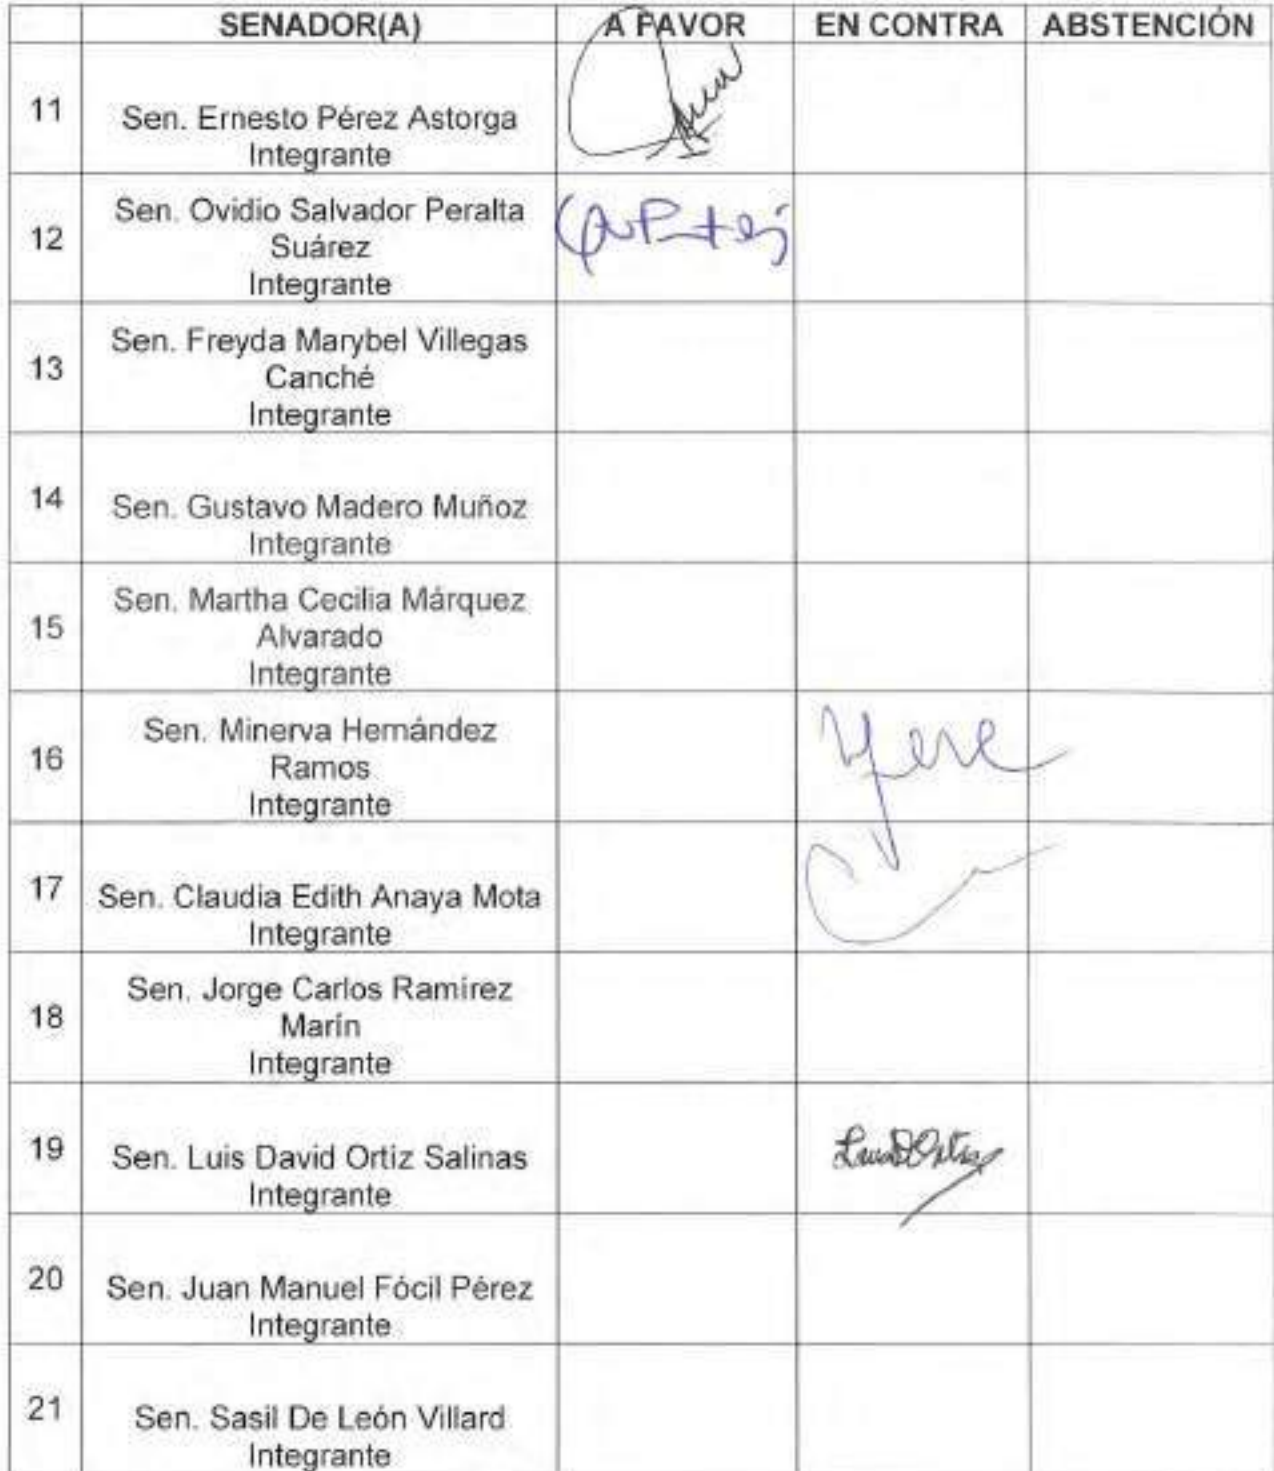 SENADOR(A) A FAVOR EN CONTRA ABSTENCIÓN
11 Sen. Ernesto Pérez Astorga
Integrante
12 Sen. Ovidio Salvador Peralta
Suárez
Integrante
13 Sen. Freyda Marybel Villegas
Canché
Integrante
14 Sen. Gustavo Madero Muñoz
Integrante
15 Sen. Martha Cecilia Márquez
Alvarado
Integrante
16 Sen. Minerva Hernández
Ramos
Integrante
17 Sen. Claudia Edith Anaya Mota
Integrante
18 Sen. Jorge Carlos Ramírez
Marín
Integrante
19 Sen. Luis David Ortiz Salinas
Integrante
20 Sen. Juan Manuel Fócil Pérez
Integrante
21 Sen. Sasil De León Villard
Integrante